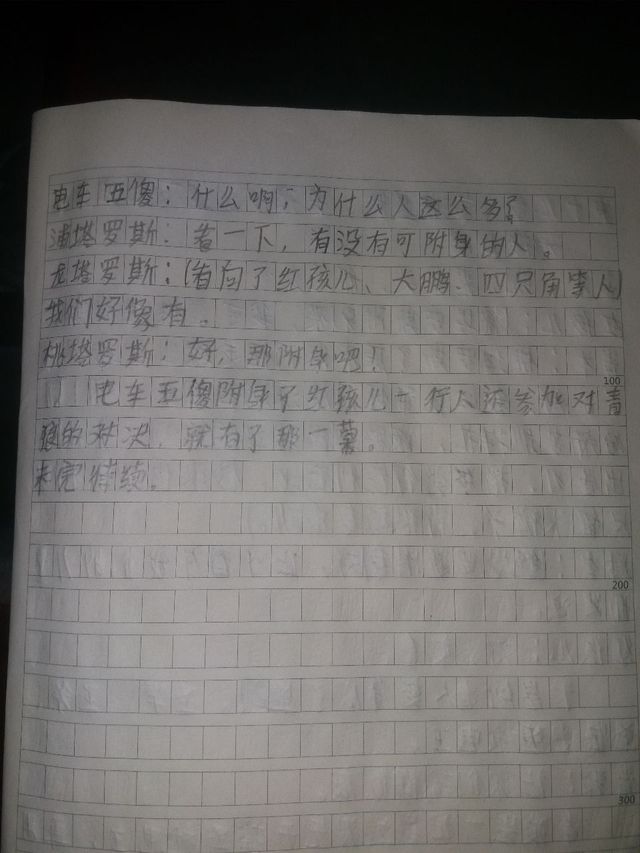 电车五傻：什么啊，为什么人这么多？
浦塔罗斯：看一下，有没有可附身的人。
龙塔罗斯：(看向了红孩儿、大鹏、四只角掌人)
我们好像有。
桃塔罗斯：好，那附身吧！
电车五傻附身了红孩儿一行人还参加对青
狼的对决，就有了那一幕。
未完待续。
100
200
300